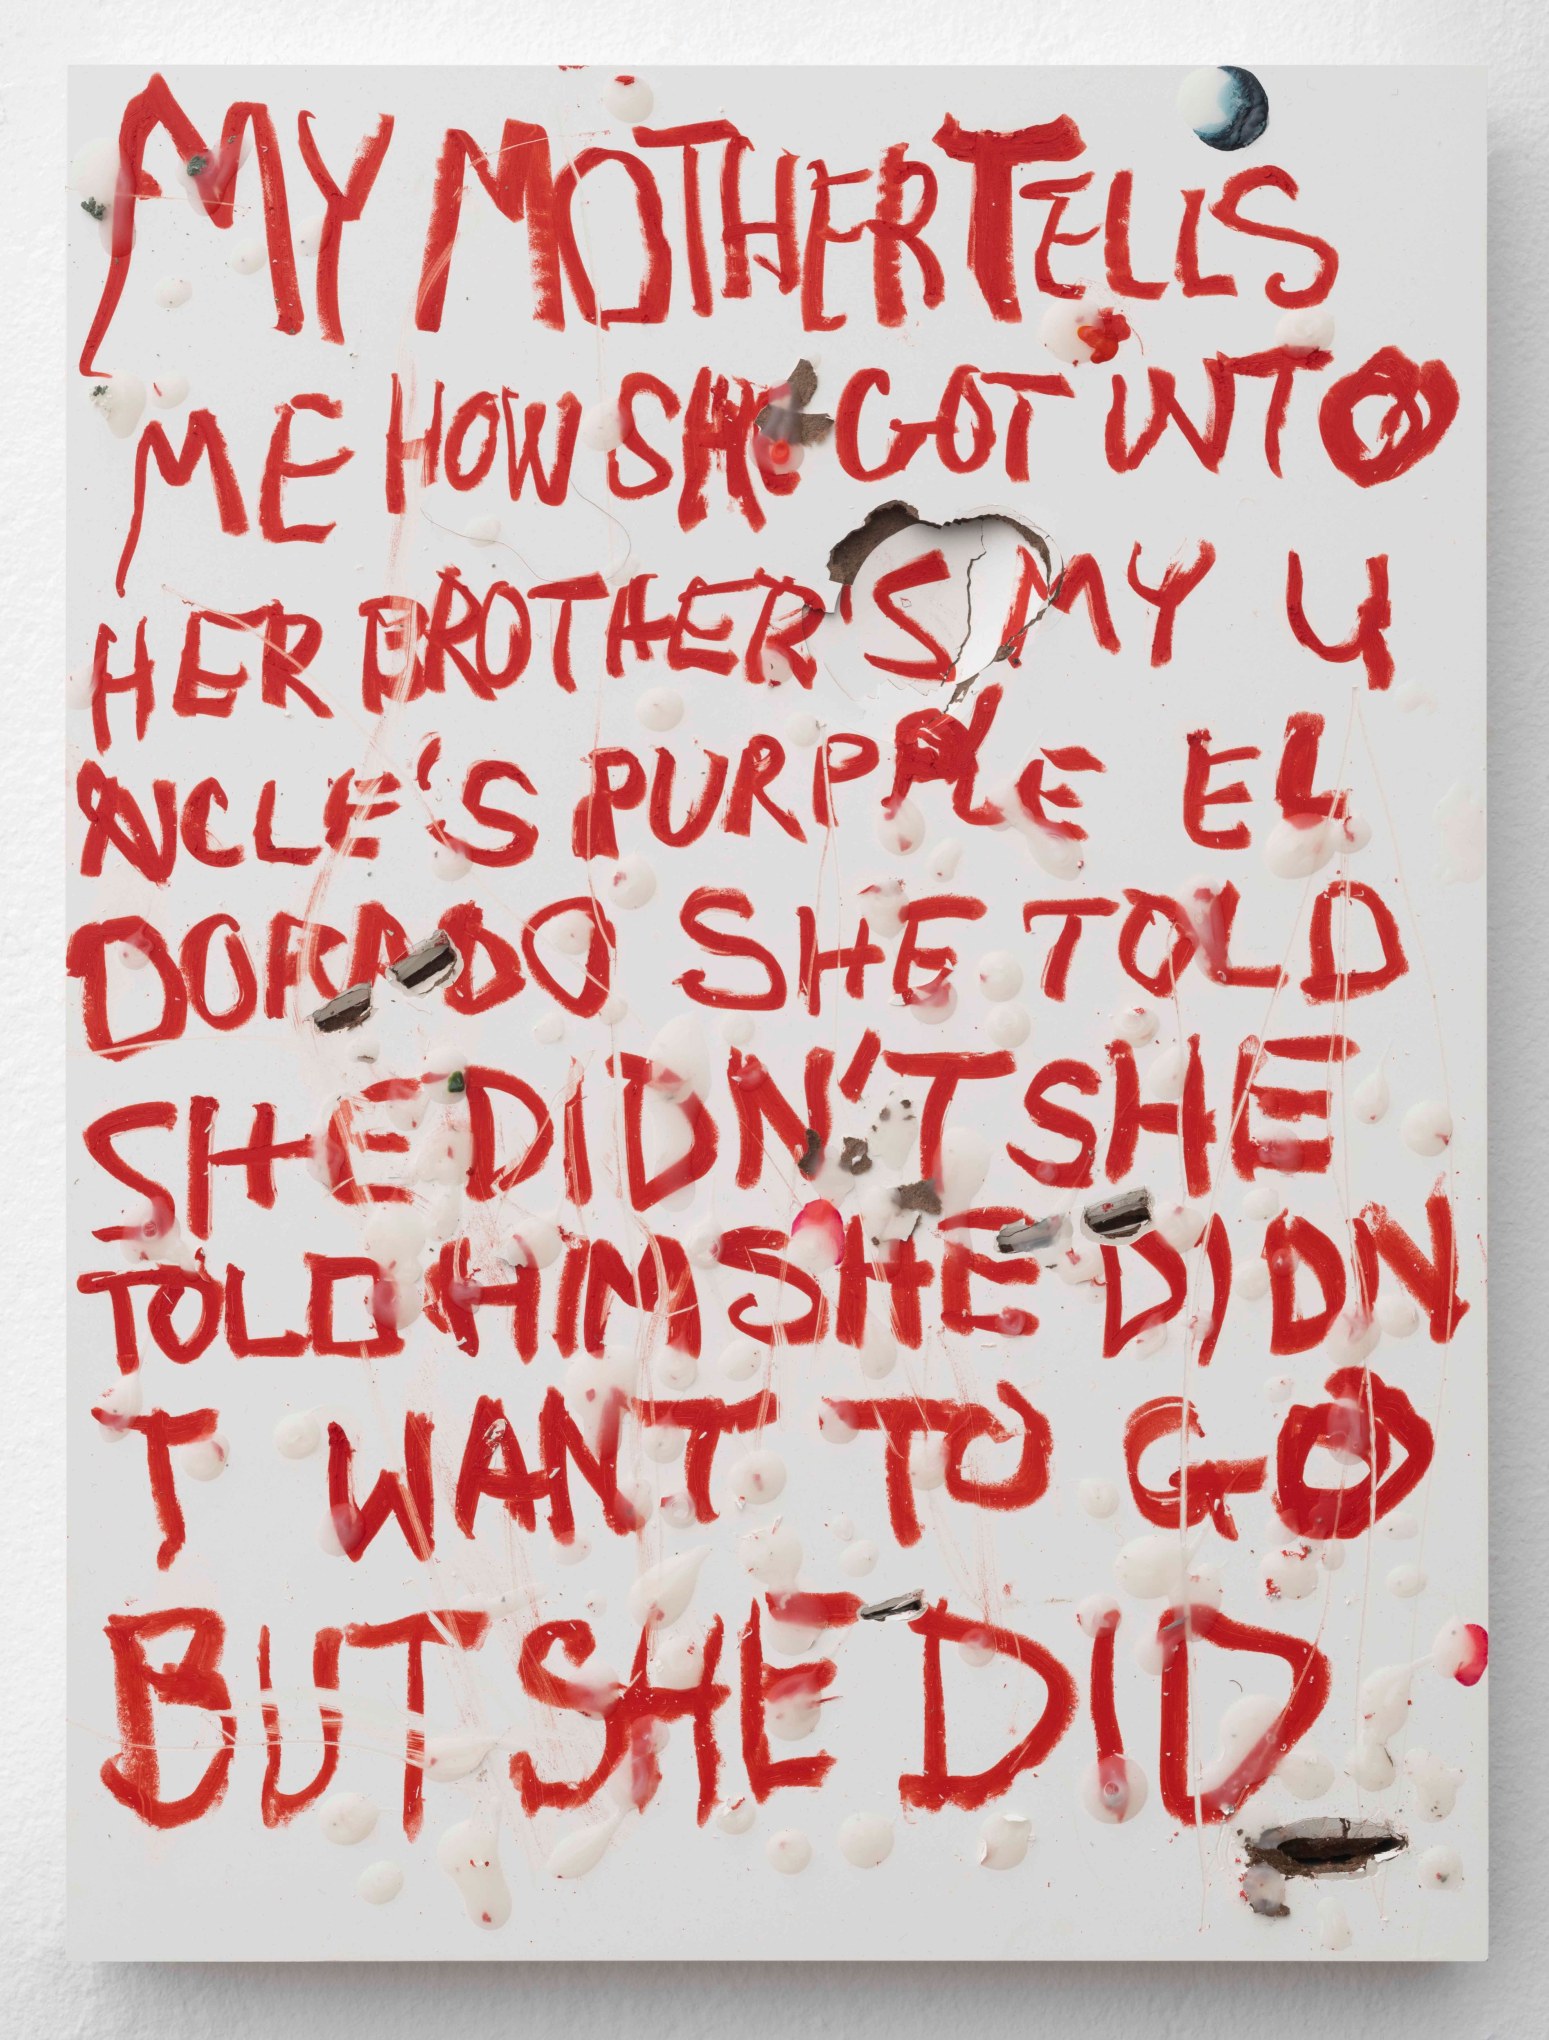 MY MOTHER TELLS
ME HOW SHE GOT INTO
HER BROTHER'S MY U
NCLE'S PURPLE EL
DORADO SHE TOLD
SHE DIDN'T SHE
TOLD HIM SHE DIDN
T WANT TO GO
BUT SHE DID